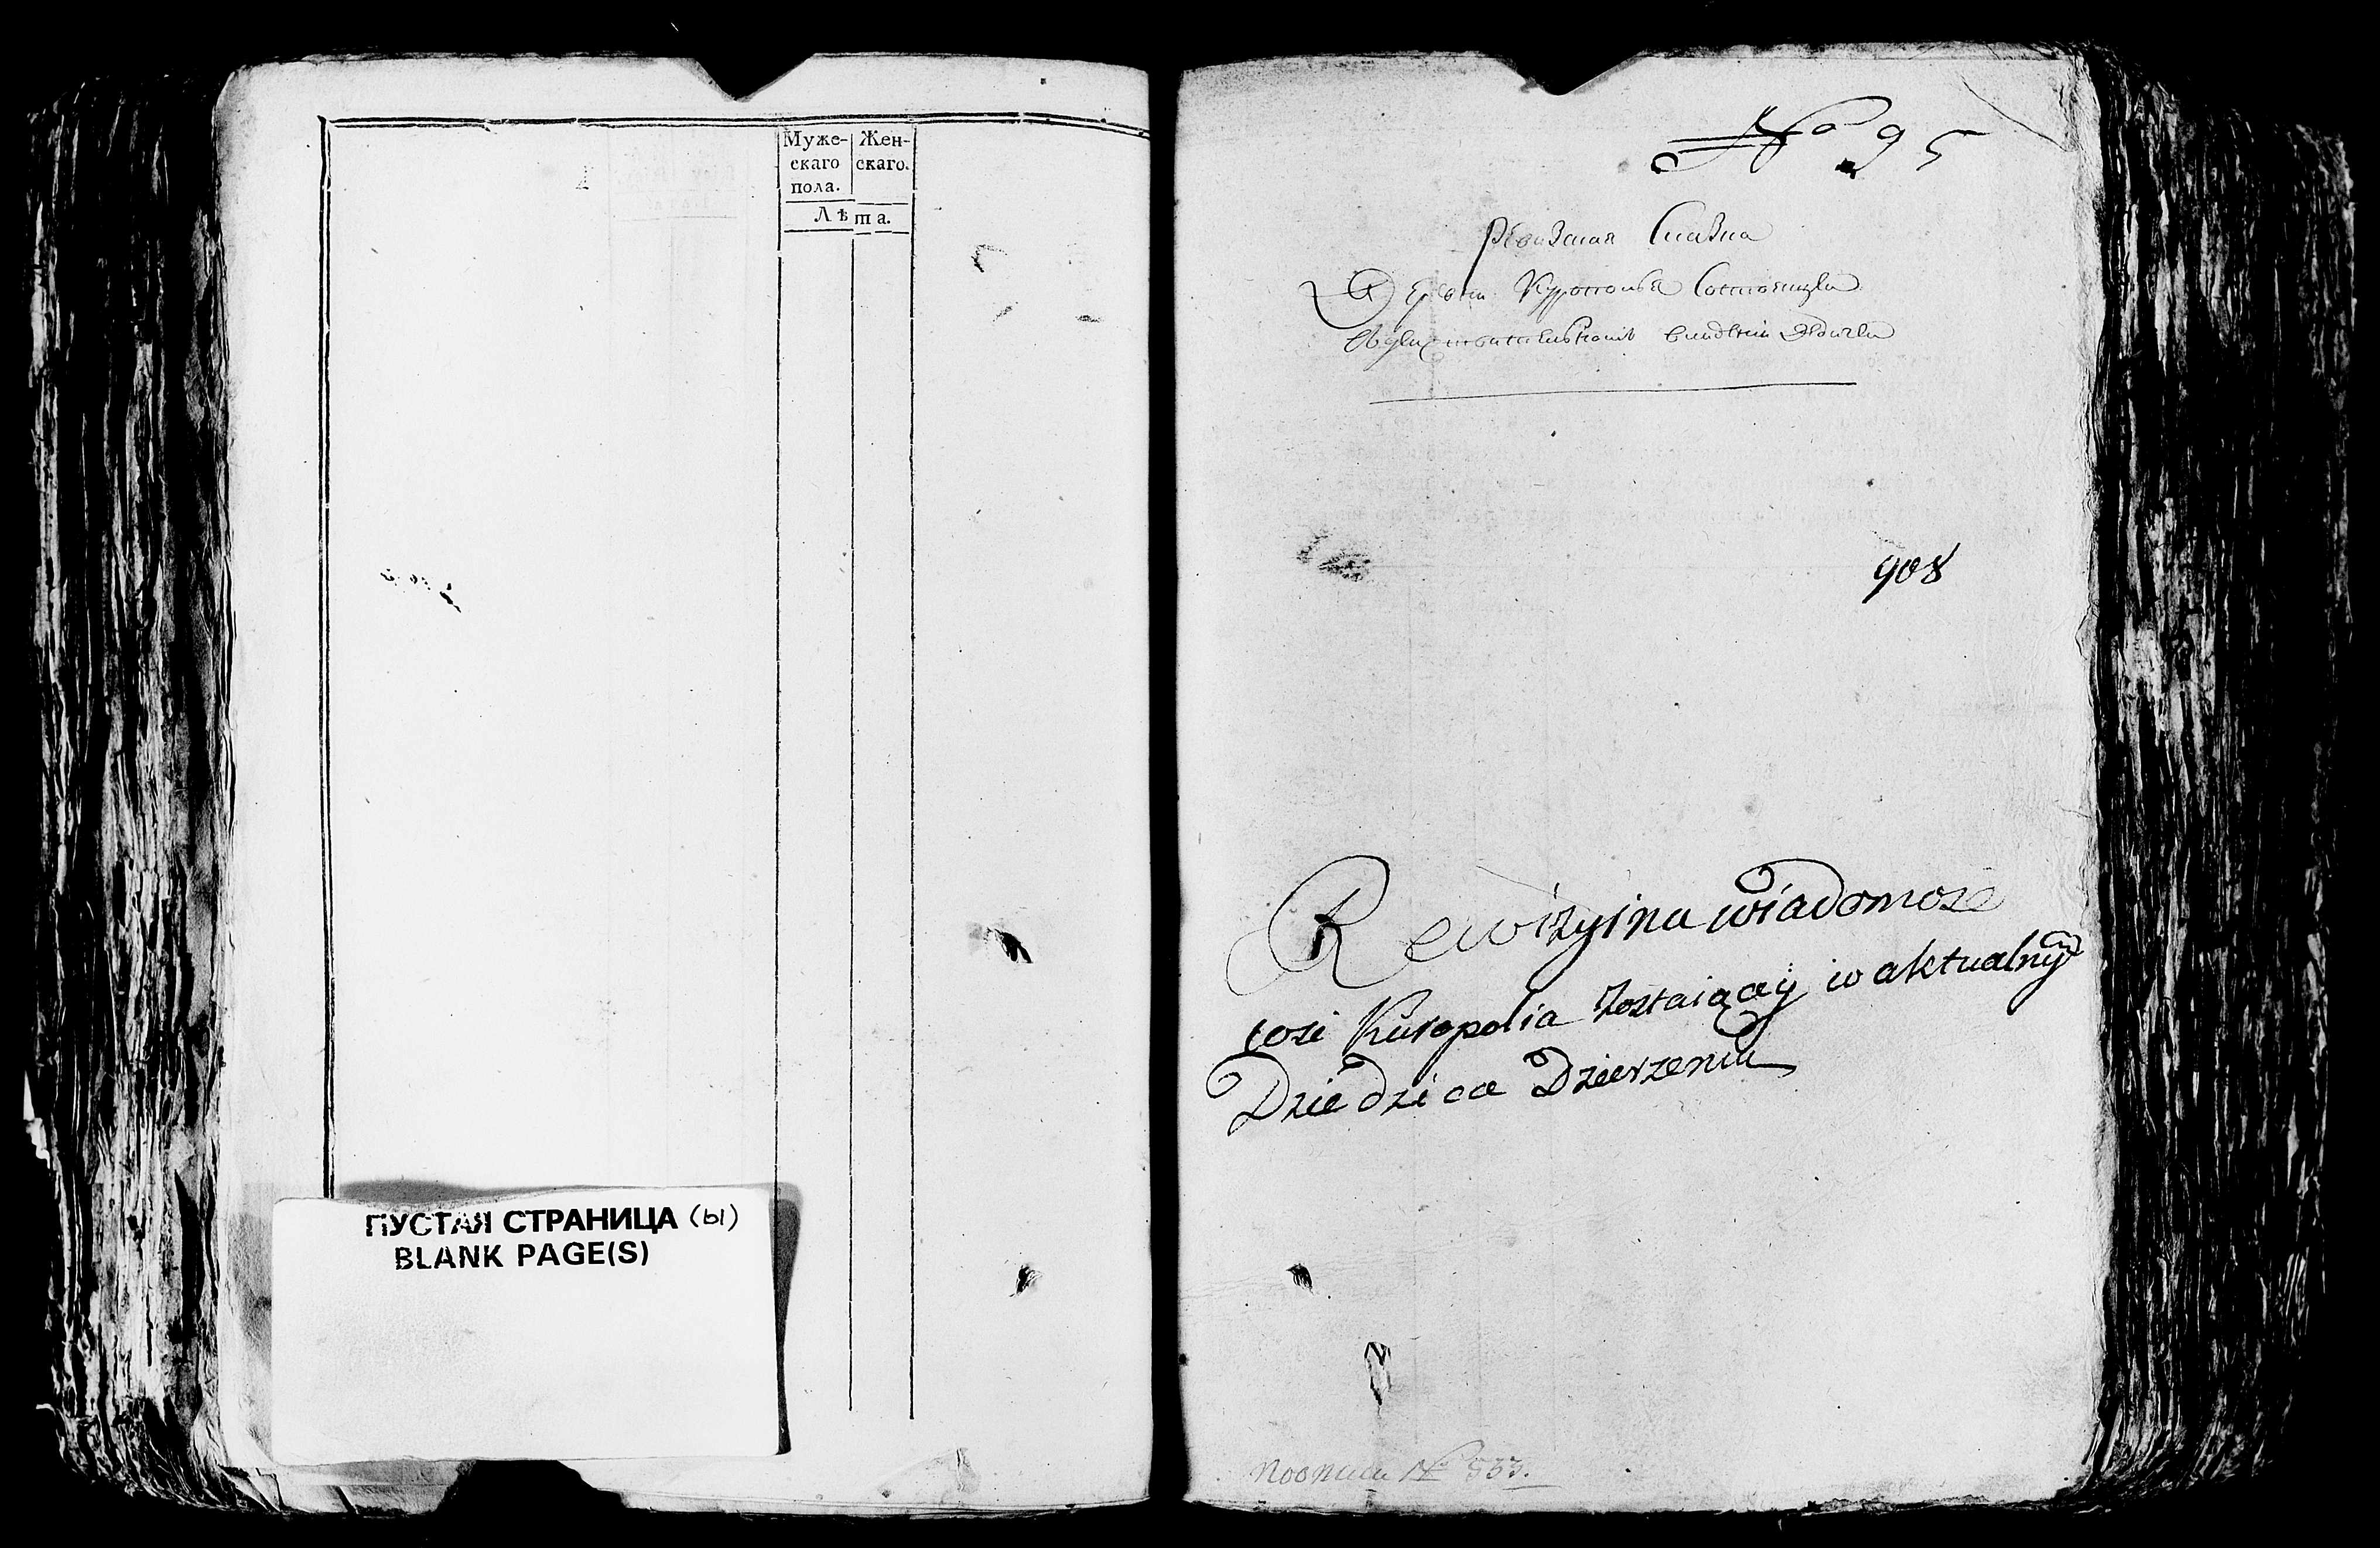 Муже- Жен-
скаго скаго.
пола.
Лѣта.
ПУСТАЯ СТРАНИЦА (ы)
BLANK PAGE(S)
№ 95
Ревизская Сказка
Деревни Куропольа Состоящей
908
Rewizyina wiadomosc
cosi Kuropolia zostaiącÿ w aktualnÿ
Dziedzica Dzierzeniu
по описи № 533.